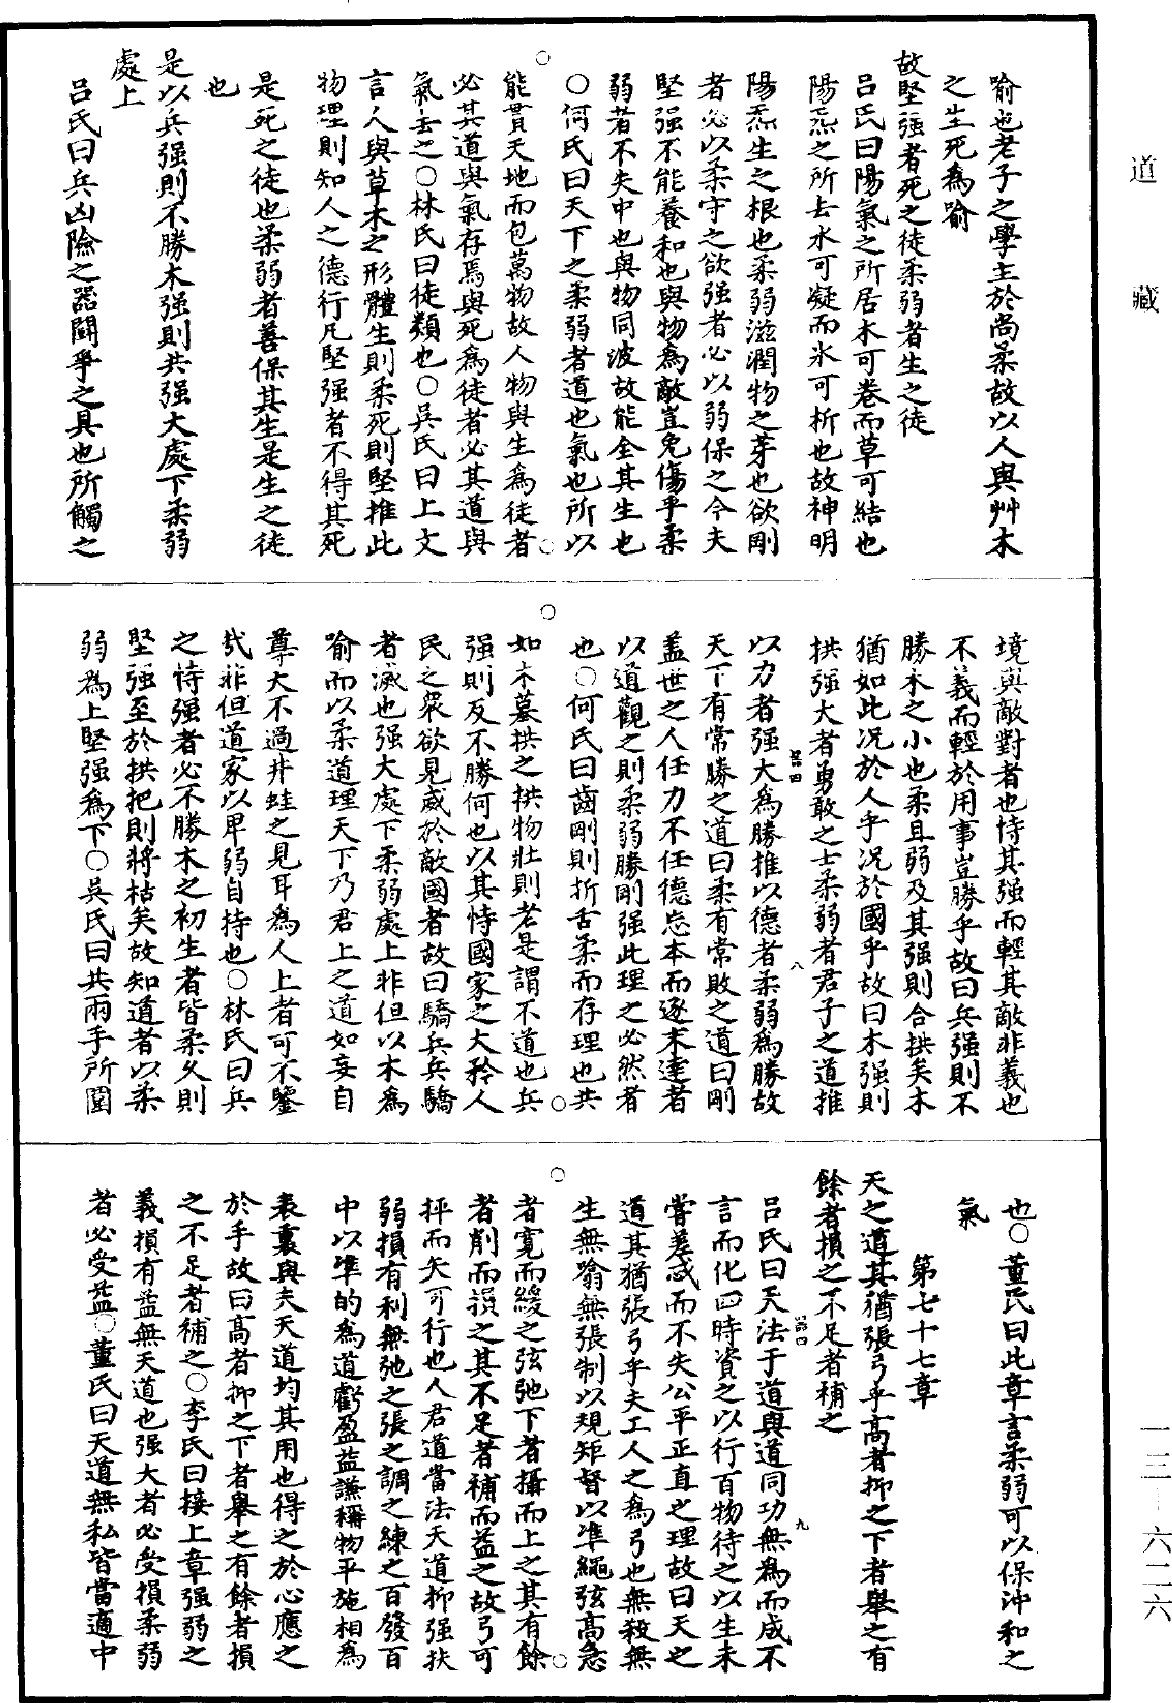 道藏
喻也老子之學主於尚柔故以人與艸木
之生死為喻
故堅强者死之徒柔弱者生之徒
吕氏曰陽氣之所居木可卷而草可結也
陽炁之所去水可凝而氷可析也故神明
陽炁生之根也柔弱滋潤物之芽也欲剛
者必以柔守之欲强者必以弱保之今夫
堅强不能養和也與物為敵豈免傷乎柔
弱者不失中也與物同波故能全其生也
○何氏曰天下之柔弱者道也氣也所以
能貫天地而包萬物故人物與生為徒者
必其道與氣存焉與死為徒者必其道與
氣去之○林氏曰徒類也○吳氏曰上文
言人與草木之形體生則柔死則堅推此
物理則知人之德行凡堅强者不得其死
是死之徒也柔弱者善保其生是生之徒
也
是以兵强則不勝木强則共强大處下柔弱
處上
吕氏曰兵凶險之器鬪爭之具也所觸之
境與敵對者也恃其强而輕其敵非義也
不義而輕於用事豈勝乎故曰兵强則不
勝木之小也柔且弱及其强則合拱矣木
猶如此况於人乎况於國乎故曰木强則
拱强大者勇敢之士柔弱者君子之道推
以力者强大為勝推以德者柔弱為勝故
天下有常勝之道曰柔有常敗之道曰剛
盖世之人任力不任德忘本而逐末達者
以道觀之則柔弱勝剛强此理之必然者
也○何氏曰齒剛則折舌柔而存理也共
如木墓拱之拱物壯則老是謂不道也兵
强則反不勝何也以其恃國家之大矜人
民之衆欲見威於敵國者故曰驕兵兵驕
者滅也强大處下柔弱處上非但以木為
喻而以柔道理天下乃君上之道如妄自
尊大不過井蛙之見耳為人上者可不鑒
哉非但道家以卑弱自持也○林氏曰兵
之恃强者必不勝木之初生者皆柔久則
堅强至於拱把則將枯矣故知道者以柔
弱為上堅强為下○吳氏曰共兩手所圍
也○董氏曰此章言柔弱可以保沖和之
氣
第七十七章
天之道其猶張弓乎髙者抑之下者舉之有
餘者損之不足者補之
吕氏曰天法于道與道同功無為而成不
言而化四時資之以行百物待之以生未
嘗差忒而不失公平正直之理故曰天之
道其猶張弓乎夫工人之為弓也無殺無
生無翕無張制以規矩督以準繩弦髙急
者寛而緩之弦弛下者攝而上之其有餘
者削而損之其不足者補而益之故弓可
抨而矢可行也人君道當法天道抑强扶
弱損有利無弛之張之調之練之百發百
中以準的為道虧盈益謙稱物平施相為
表裏與夫天道均其用也得之於心應之
於手故曰髙者抑之下者舉之有餘者損
之不足者補之○李氏曰接上章强弱之
義損有益無天道也强大者必受損柔弱
者必受益○董氏曰天道無私皆當適中
一三—六二六